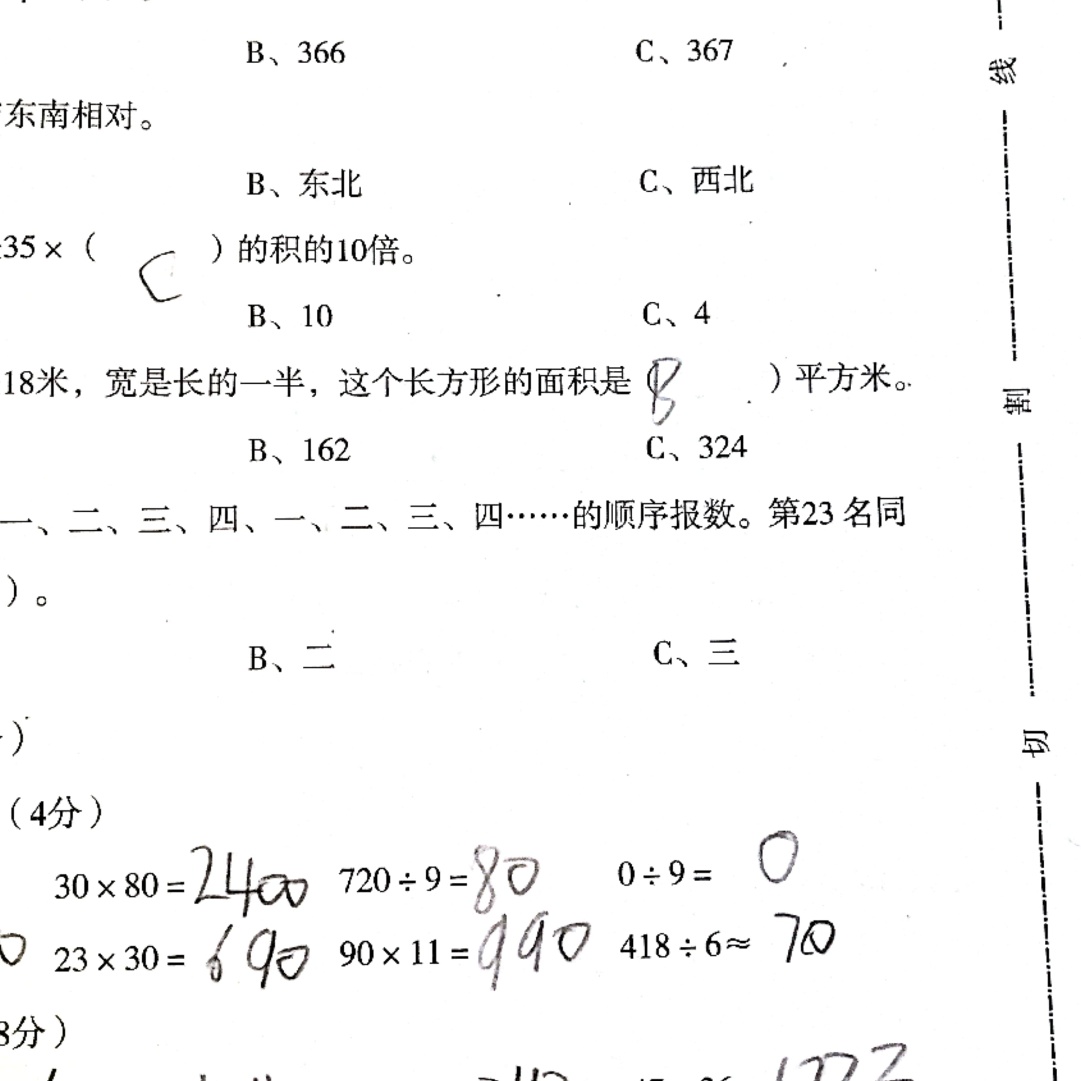 B、366 C、367
东南相对。
B、东北 C、西北
35×( C )的积的10倍。
B、10 C、4
18米，宽是长的一半，这个长方形的面积是( B )平方米。
B、162 C、324
一、二、三、四、一、二、三、四……的顺序报数。第23名同
)。
B、二 C、三
)
(4分)
30×80=2400 720÷9=80 0÷9= 0
0 23×30=690 90×11=990 418÷6≈ 70
8分)
线
割
切